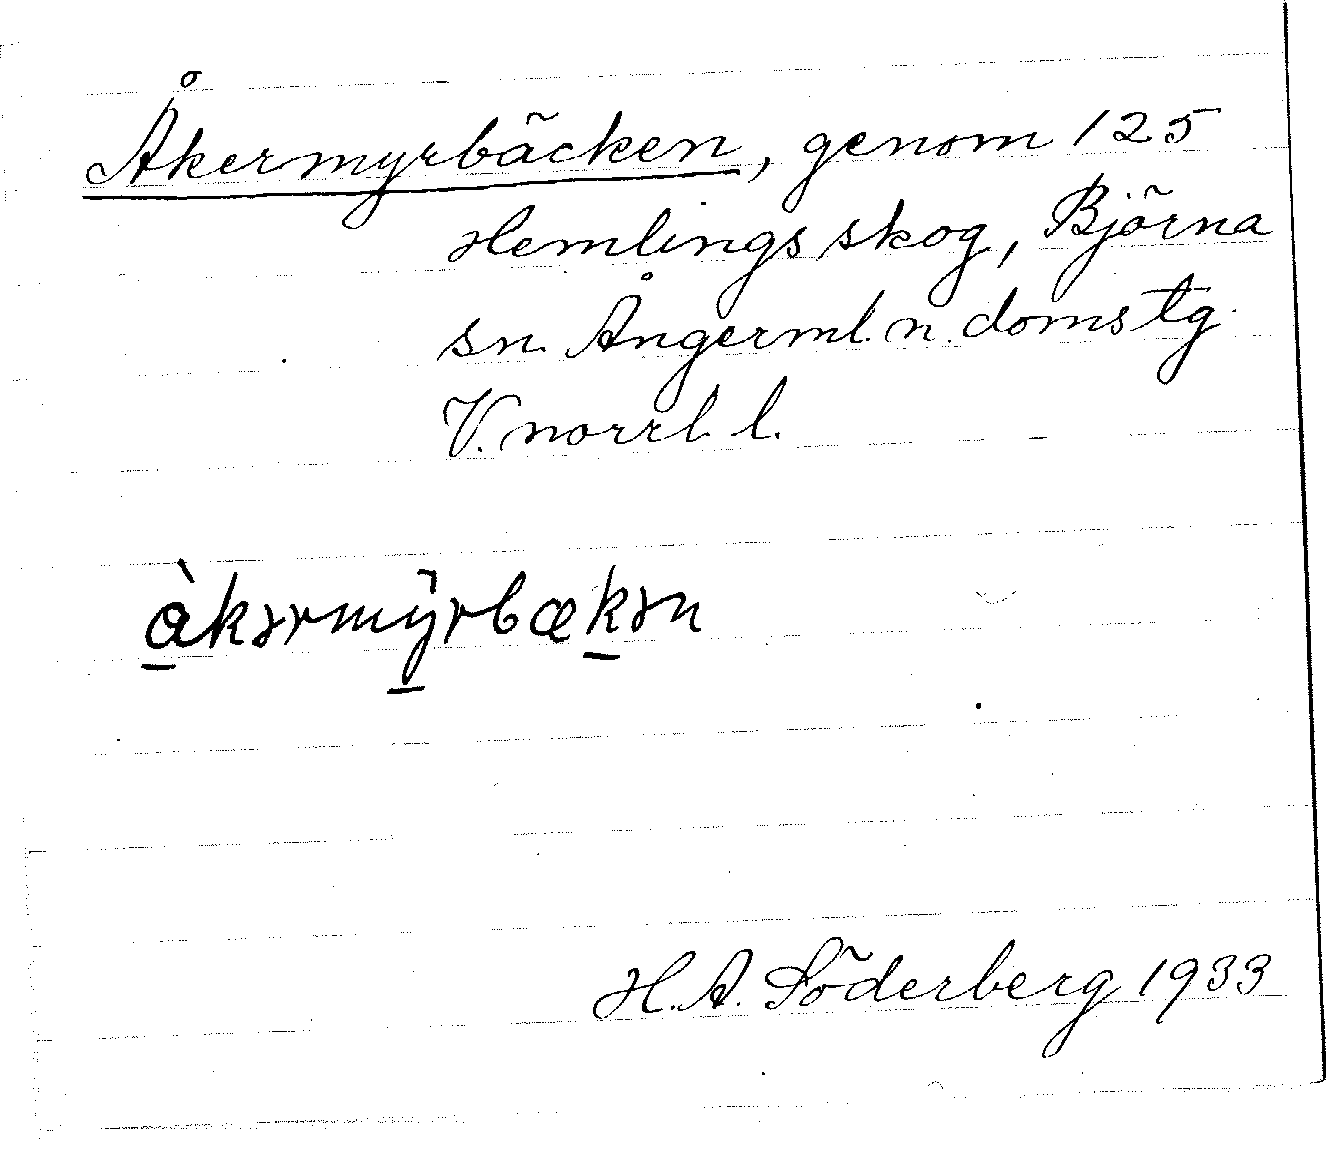 Åkermyrbäcken, genom 125
Hemlings skog, Björna
sn. Ångerml. n. domstg.
V. norrl. l.
à̱kərmȳ̱rbæḵən
H. A. Söderberg 1933